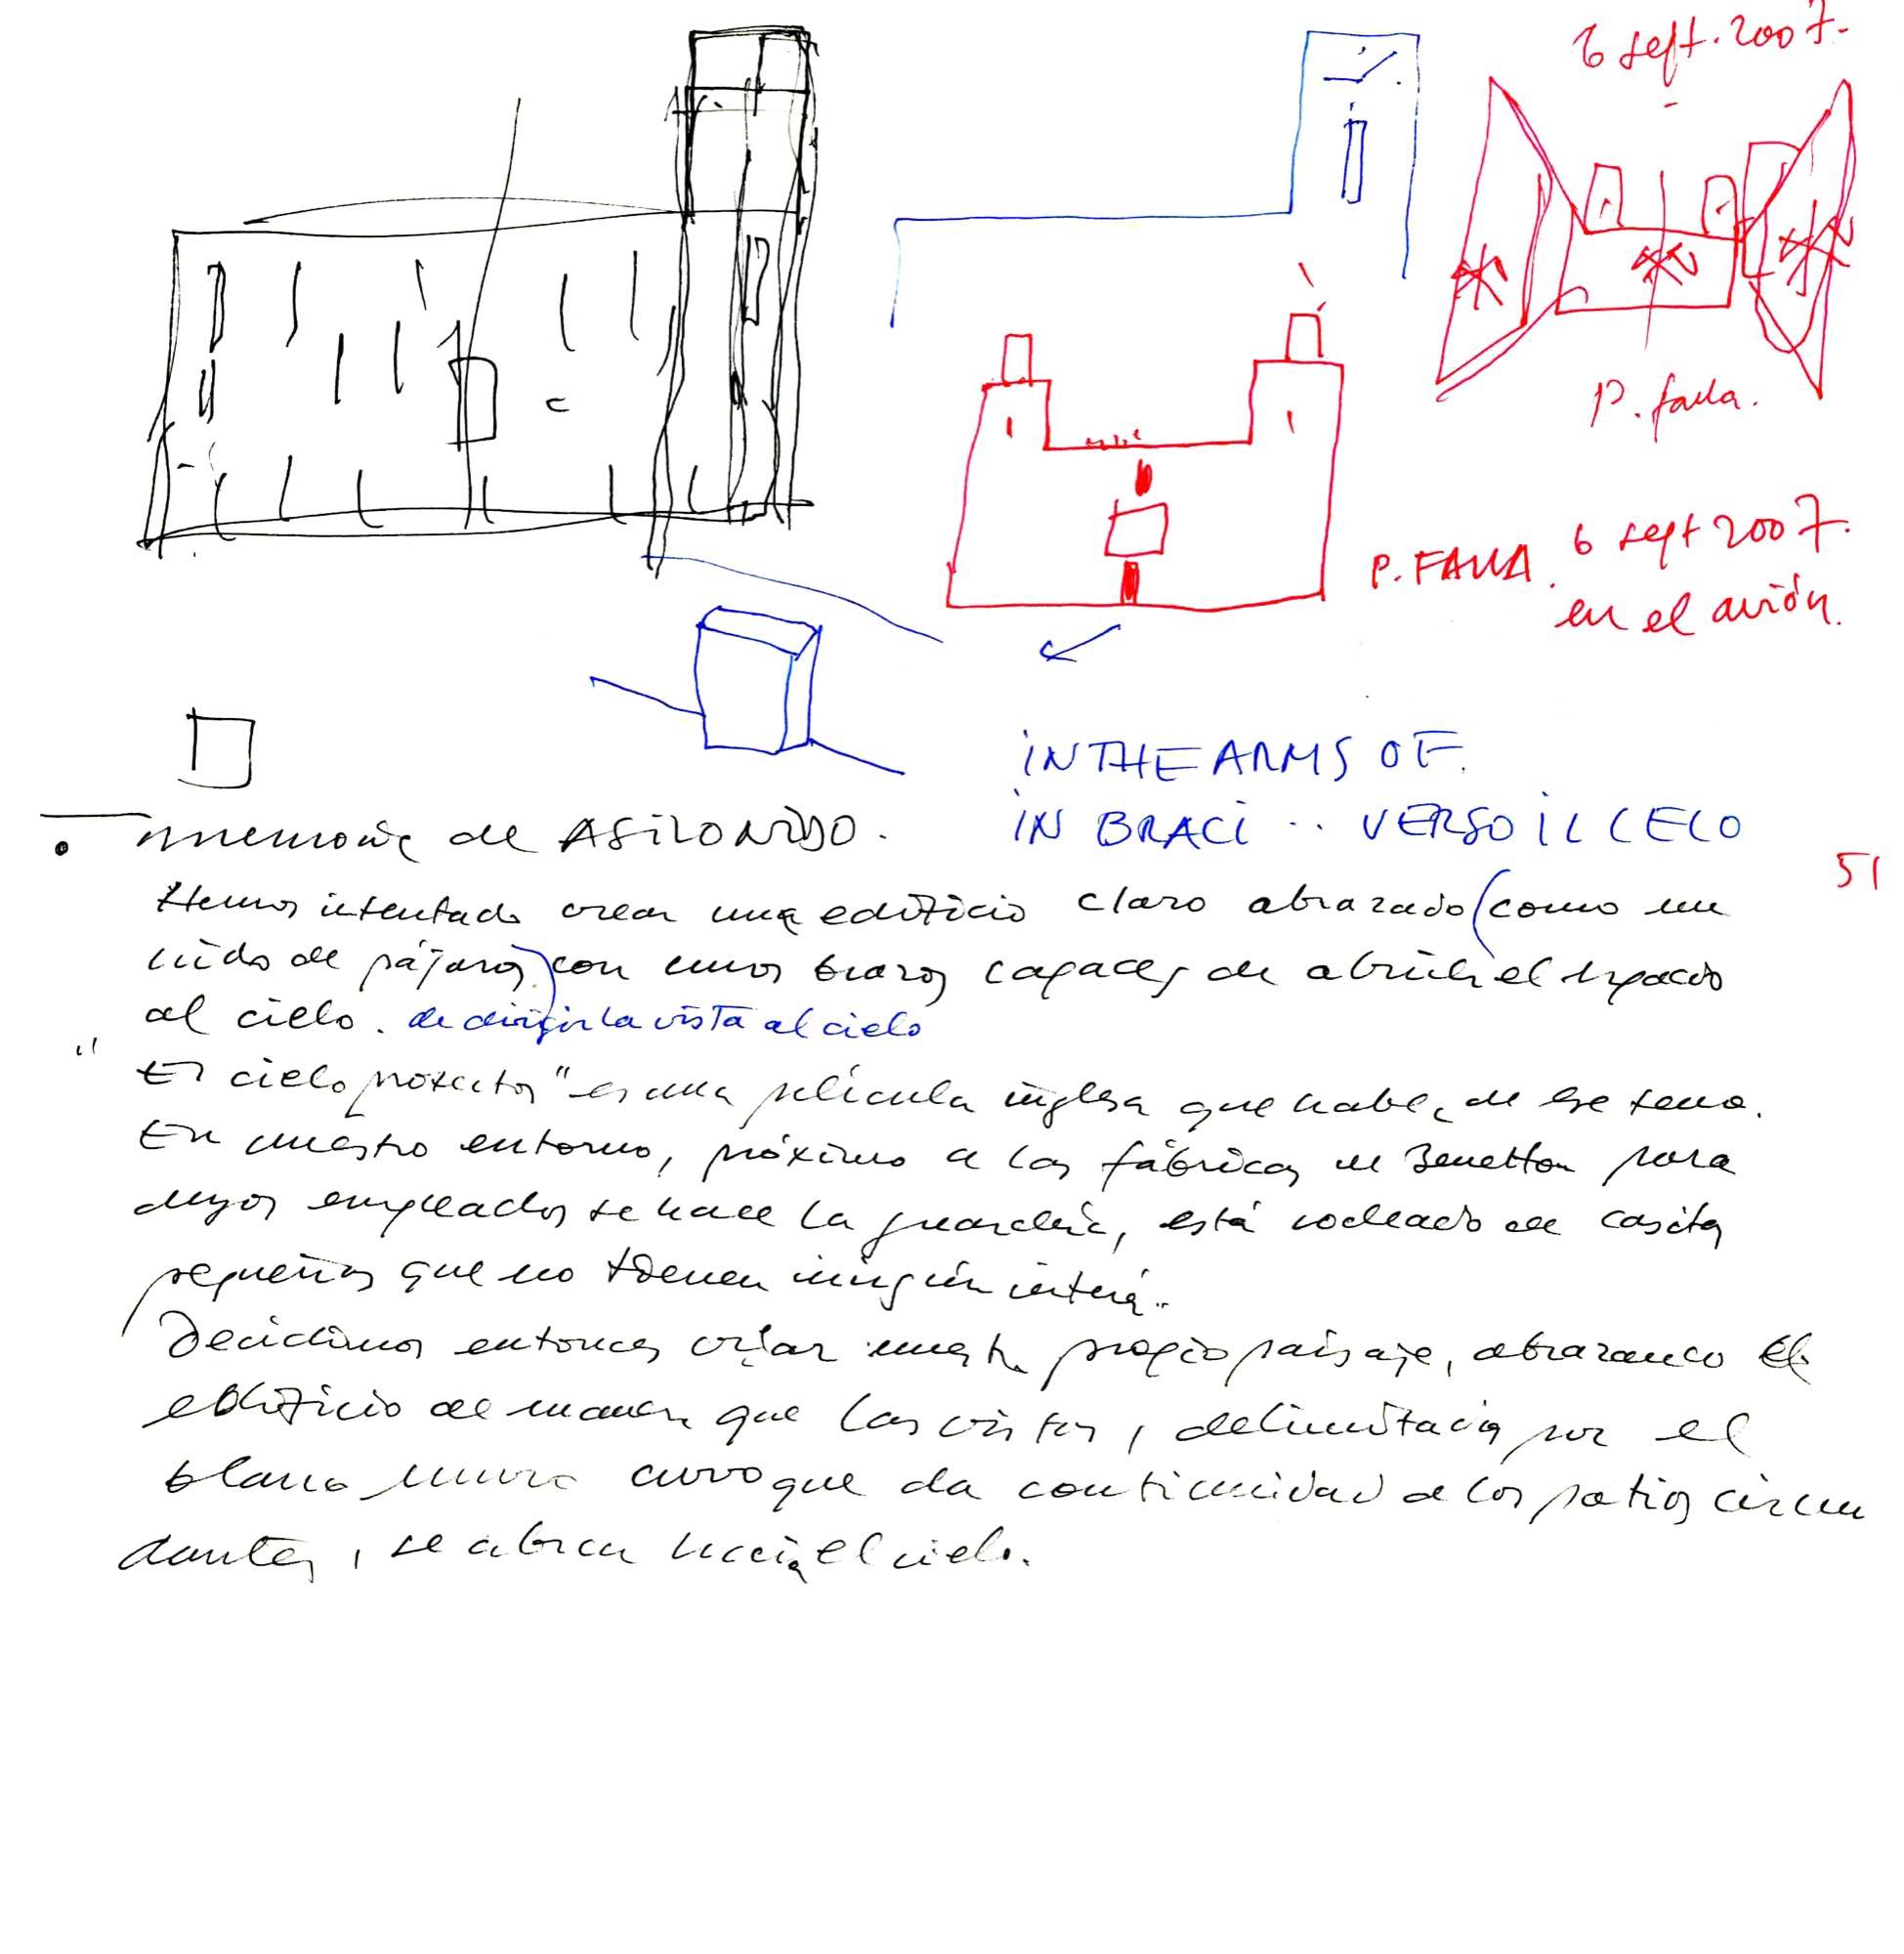 6 sept. 2007.
P. Falla.
P. FALLA. 6 sept 2007.
en el avión.
IN THE ARMS OF.
IN BRACI .. VERSO IL CELO
memoria de ASILO NIDO.
51
Hemos intentado crear una edificio claro abrazado (como un
nido de pájaros) con unos brazos capaces de abrir el espacio
al cielo. de dirigir la vista al cielo
"El cielo protector" es una película inglesa que habla de ese tema.
En nuestro entorno, próximo a las fábricas de Benetton para
cuyos empleados se hace la guardería, está rodeado de casitas
pequeñas que no tienen ningún interés..
Decidimos entonces crear nuestro propio paisaje, abrazando el
edificio de manera que las vistas, delimitadas por el
blanco muro curvo que da continuidad a los patios circun
dantes, se abran hacia el cielo.